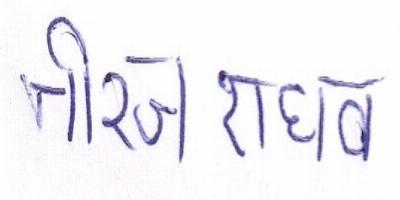 नीरज राघव